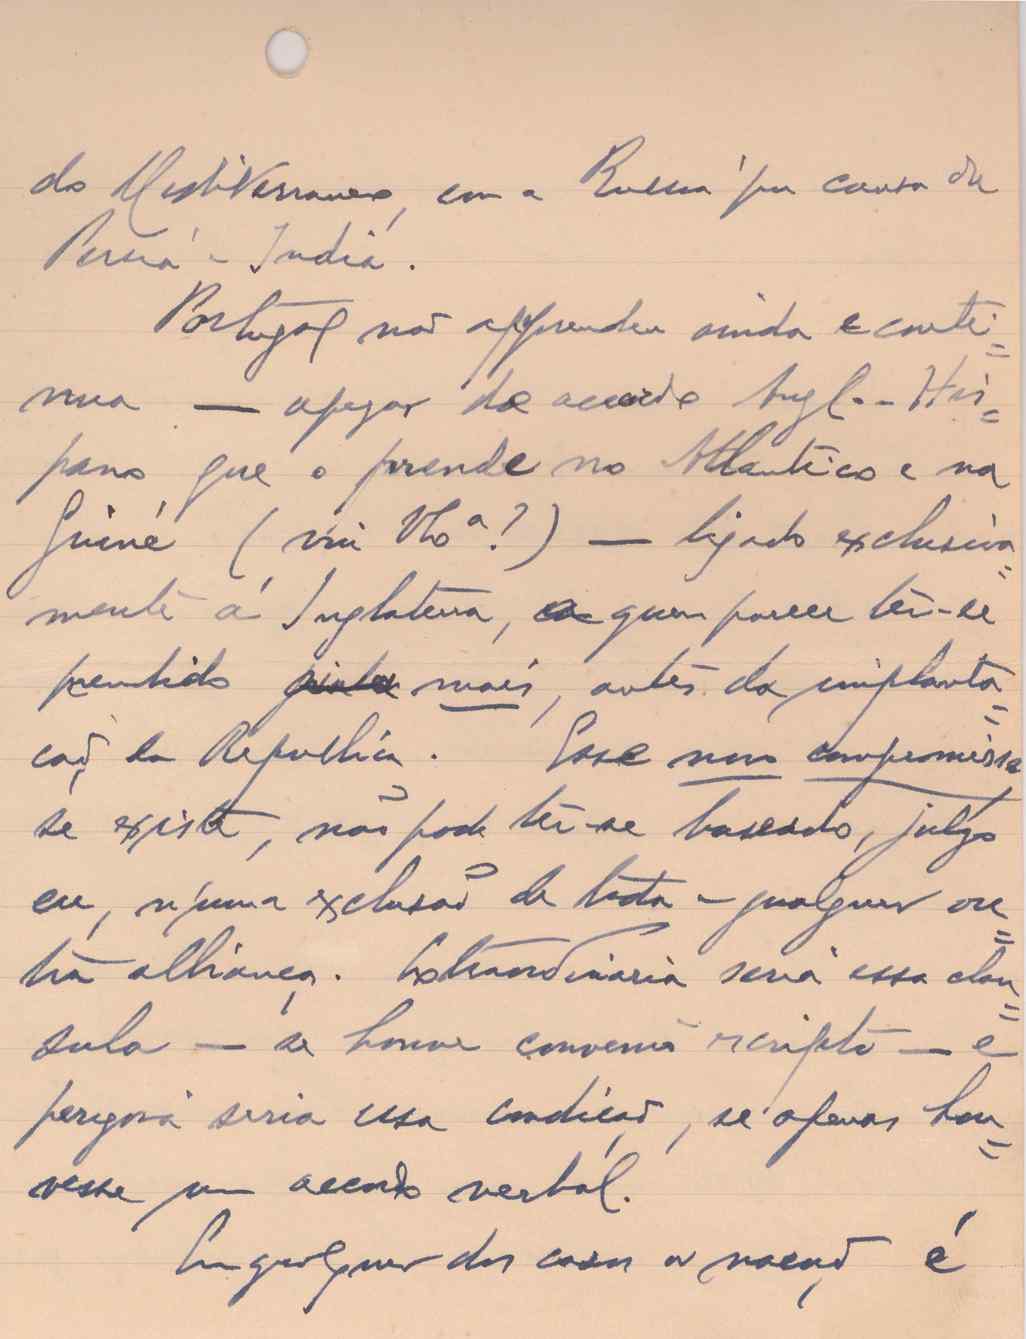 do Mediterraneo, com a Russia por causa da
Persia e India.
Portugal não apprendeu ainda e conti=
nua — apezar do accordo Angl.-His=
pano que o prende no Atlantico e na
Guiné ( ) — ligado exclusiva=
mente á Inglaterra, a quem parece ter-se
prendido mais, antes da implanta=
ção da Republica. Esse novo compromisso
se existe, não pode ter-se baseado, julgo
eu, n'uma exclusão de toda e qualquer ou=
tra alliança. Extraordinaria seria essa clau=
sula — se houve convenio escripto — e
perigosa seria essa condição, se apenas hou=
vesse um accordo verbal.
Em qualquer dos casos a nação é